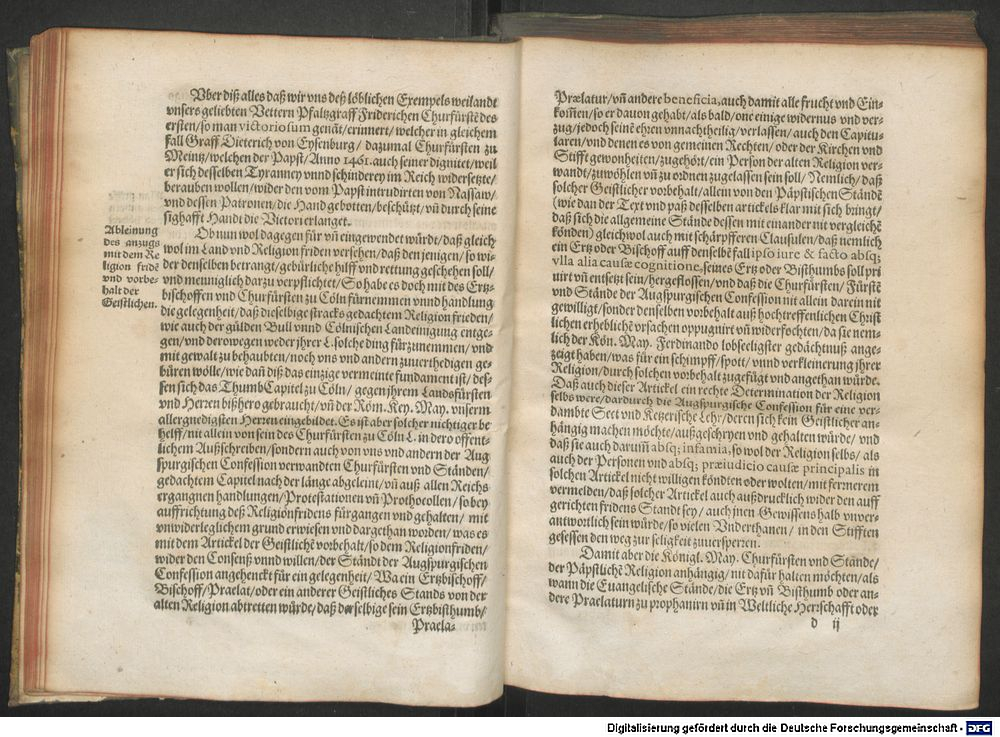 Vber diß alles daß wir vns deß löblichen Exempels weilandt
vnsers geliebten Vettern Pfaltzgraff Friderichen Churfürstẽ des
ersten/so man victoriosum genãt/erinnert/welcher in gleichem
fall Graff Dieterich von Eysenburg/ dazumal Churfürsten zu
Meintz/welchen der Papst/Anno 1461.auch seiner dignitet/weil
er sich desselben Tyranney vnnd schinderey im Reich widersetzte/
berauben wollen/wider den vom Papst intrudirten von Nassaw/
vnd dessen Patronen/die Hand gebotten/beschützt/vñ durch seine
sighafft Handt die Victori erlanget.
Ableinung
des anzugs
mit dem Re
ligion fridẽ
vnd vorbe-
halt der
Geistlichen.
Ob nun wol dagegen für vñ eingewendet würdt/daß gleich
wol im Land vnd Religion friden versehen/daß den jenigen/so wi-
der denselben betrangt/gebürliche hilff vnd rettung geschehen soll/
vnd menniglich darzu verpflichtet/So habe es doch mit des Ertz-
bischoffen vnd Churfürsten zu Cöln fürnemmen vnnd handlung
die gelegenheit/daß dieselbige stracks gedachtem Religion frieden/
wie auch der gülden Bull vnnd Cölnischen Landeinigung entge-
gen/vnd derowegen weder jhrer L.solche ding fürzunemmen/vnd
mit gewalt zu behaubten/noch vns vnd andern zuuerthedigen ge-
büren wölle/wie dañ diß das einzige vermeinte fundament ist/des-
sen sich das ThumbCapitel zu Cöln/ gegen jhrem Landsfürsten
vnd Herren bißhero gebraucht/vñ der Röm. Key. May. vnserm
allergnedigsten Herren eingebildet. Es ist aber solcher nichtiger be
helff/nit allein von sein des Churfürsten zu Cöln L. in dero offent-
lichem Außschreiben/sondern auch von vns vnd andern der Aug
spurgischen Confession verwandten Churfürsten vnd Ständen/
gedachtem Capitel nach der länge abgeleint/vñ auß allen Reichs
ergangnen handlungen/Protestationen vñ Prothocollen/so bey
auffrichtung deß Religionfridens fürgangen vnd gehalten/ mit
vnwiderleglichem grund erwiesen vnd dargethan worden/was es
mit dem Artickel der Geistlichẽ vorbehalt/so dem Religionfriden/
wider den Consenß vnnd willen/der Ständt der Augspurgischen
Confession angehenckt für ein gelegenheit/ Wa ein Ertzbischoff/
Bischoff/Praelat/oder ein anderer Geistliches Stands von der
alten Religion abtretten würde/daß derselbige sein Ertzbisthumb/
Praela-
Prælatur/vñ andere beneficia,auch damit alle frucht vnd Ein-
kom̃en/so er dauon gehabt/als bald/one einige widernus vnd ver-
zug/jedoch seinẽ ehren vnnachtheilig/verlassen/auch den Capitu-
laren/vnd denen es von gemeinen Rechten/oder der Kirchen vnd
Stifft gewonheiten/zugehört/ein Person der alten Religion ver-
wandt/zuwöhlen vñ zu ordnen zugelassen sein soll/Nemlich/daß
solcher Geistlicher vorbehalt/allein von den Päpstischen Ständẽ
(wie dan der Text vnd paß desselben artickels klar mit sich bringt/
daß sich die allgemeine Stände dessen mit einander nit vergleichẽ
könden) gleichwol auch mit schärpfferen Clausulen/daß nemlich
ein Ertz oder Bischoff auff denselbẽ fall ipso iure & facto absq;
vlla alia causæ cognitione,seines Ertz oder Bisthumbs soll pri
uirt vñ entsetzt sein/hergeflossen/vnd daß die Churfürsten/ Fürstẽ
vnd Stände der Augspurgischen Confession nit allein darein nit
gewilligt/sonder denselben vorbehalt auß hochtreffenlichen Christ
lichen erheblichẽ vrsachen oppugnirt vñ widerfochten/da sie nem-
lich der Kön. May. Ferdinando lobseeligster gedächtnuß ange-
zeigt haben/was für ein schimpff/spott/ vnnd verkleinerung jhrer
Religion/durch solchen vorbehalt zugefügt vnd angethan würde.
Daß auch dieser Artickel ein rechte Determination der Religion
selbs were/dardurch die Augspurgische Confession für eine ver-
dambte Sect vnd Ketzerische Lehr/deren sich kein Geistlicher an-
hängig machen möchte/außgeschryen vnd gehalten würde/ vnd
daß sie auch darum̃ absq; infamia,so wol der Religion selbs/ als
auch der Personen vnd absq; præiudicio causæ principalis in
solchen Artickel nicht willigen köndten oder wolten/mit fernerem
vermelden/daß solcher Artickel auch außdrucklich wider den auff
gerichten fridens Stand sey/ auch jnen Gewissens halb vnuer-
antwortlich sein würde/so vielen Vnderthanen/ in den Stifften
gesessen den weg zur seligkeit zuuersperren.
Damit aber die Königl. May. Churfürsten vnd Stände/
der Päpstlichẽ Religion anhängig/nit dafür halten möchten/als
wann die Euangelische Stände/die Ertz vñ Bisthumb oder an-
dere Praelaturn zu prophanirn vñ in Weltliche Herrschafft oder
d ij
Digitalisierung gefördert durch die Deutsche Forschungsgemeinschaft - DFG